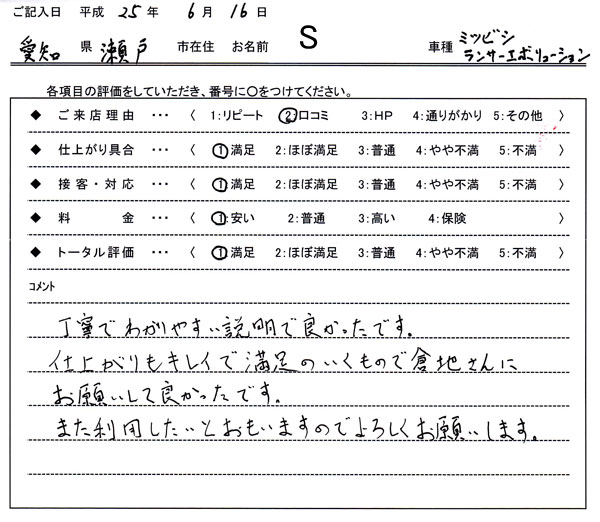 ご記入日 平成 25 年 6 月 16 日
愛知 県 瀬戸 市在住 お名前 S 車種 ミツビシ ランサーエボリューション
各項目の評価をしていただき、番号に○をつけてください。
◆ ご来店理由 ・・・ 〈 1:リピート 2:口コミ 3:HP 4:通りがかり 5:その他 〉
◆ 仕上がり具合 ・・・ 〈 1:満足 2:ほぼ満足 3:普通 4:やや不満 5:不満 〉
◆ 接客・対応 ・・・ 〈 1:満足 2:ほぼ満足 3:普通 4:やや不満 5:不満 〉
◆ 料金 ・・・ 〈 1:安い 2:普通 3:高い 4:保険 〉
◆ トータル評価 ・・・ 〈 1:満足 2:ほぼ満足 3:普通 4:やや不満 5:不満 〉
コメント
丁寧でわかりやすい説明で良かったです。
仕上がりもキレイで満足のいくもので倉地さんに
お願いして良かったです。
また利用したいとおもいますのでよろしくお願いします。